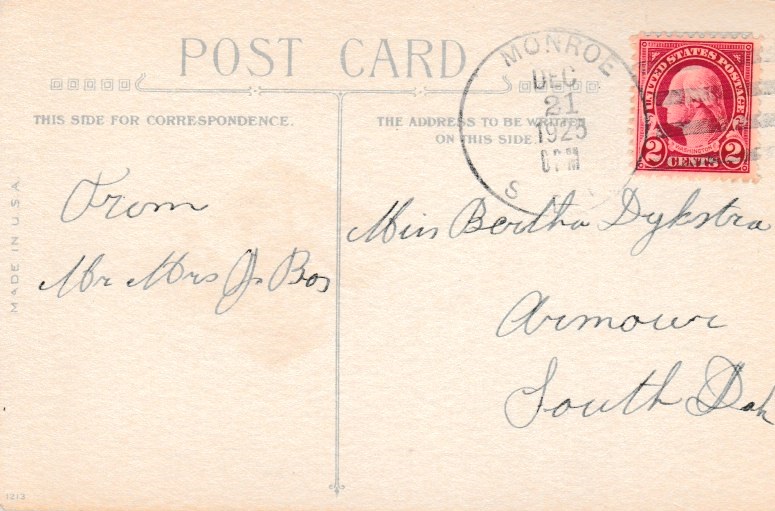 POST CARD
THIS SIDE FOR CORRESPONDENCE.
THE ADDRESS TO BE WRITTEN
ON THIS SIDE.
MONROE
DEC
21
1925
6 PM
S.
UNITED STATES POSTAGE
WASHINGTON
2 CENTS 2
From
Mr Mrs J. Bos
Miss Bertha Dykstra
Armour
South Dak
MADE IN U.S.A.
1213